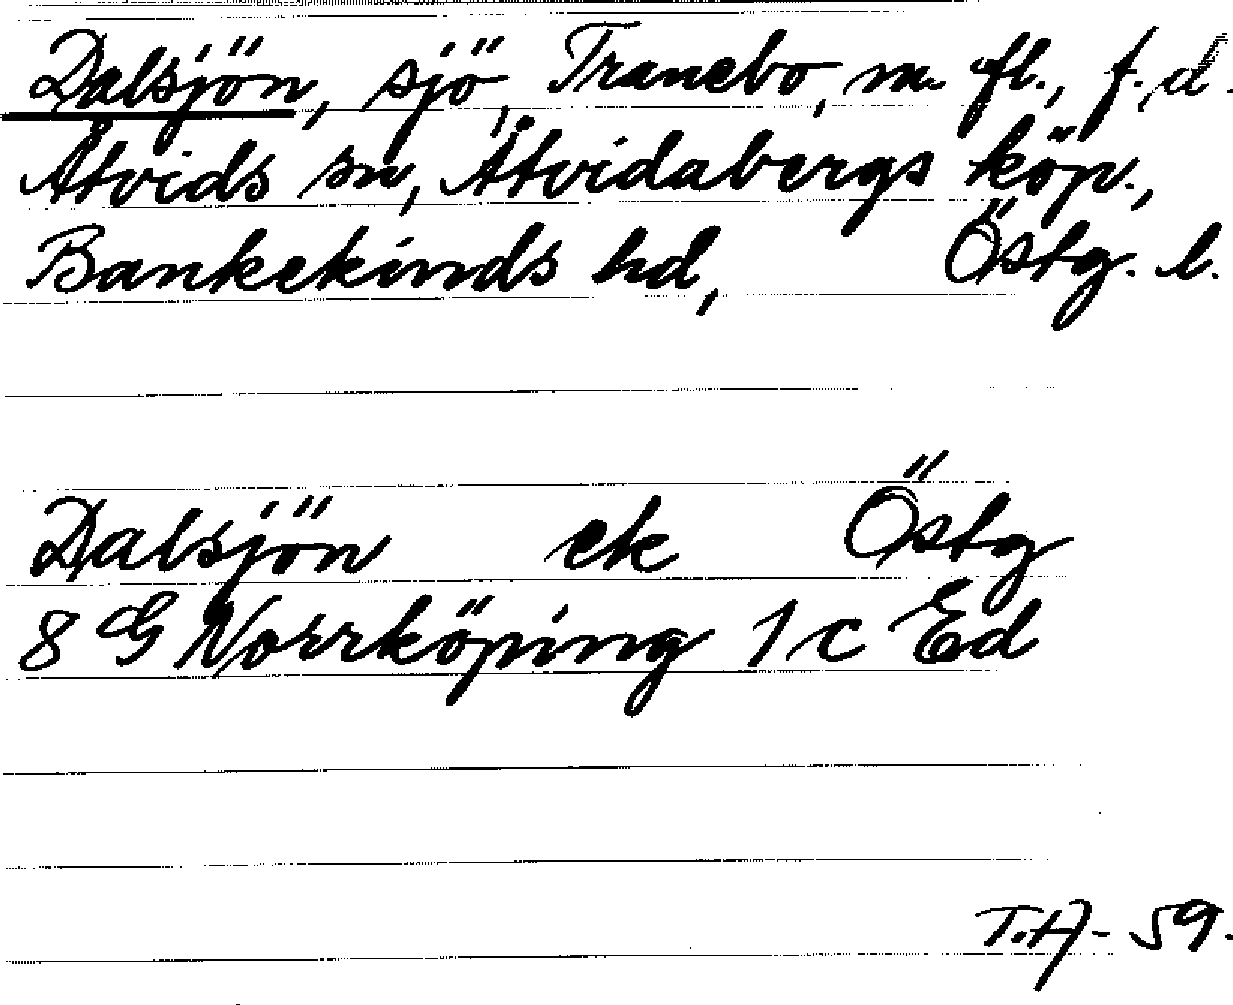 Dalsjön, sjö, Tranebo, m. fl., f.d.
Åtvids sn, Åtvidabergs köp.,
Bankekinds hd, Östg. l.
Dalsjön ek Östg
8 G Norrköping 1 c Ed
T.A- 59.